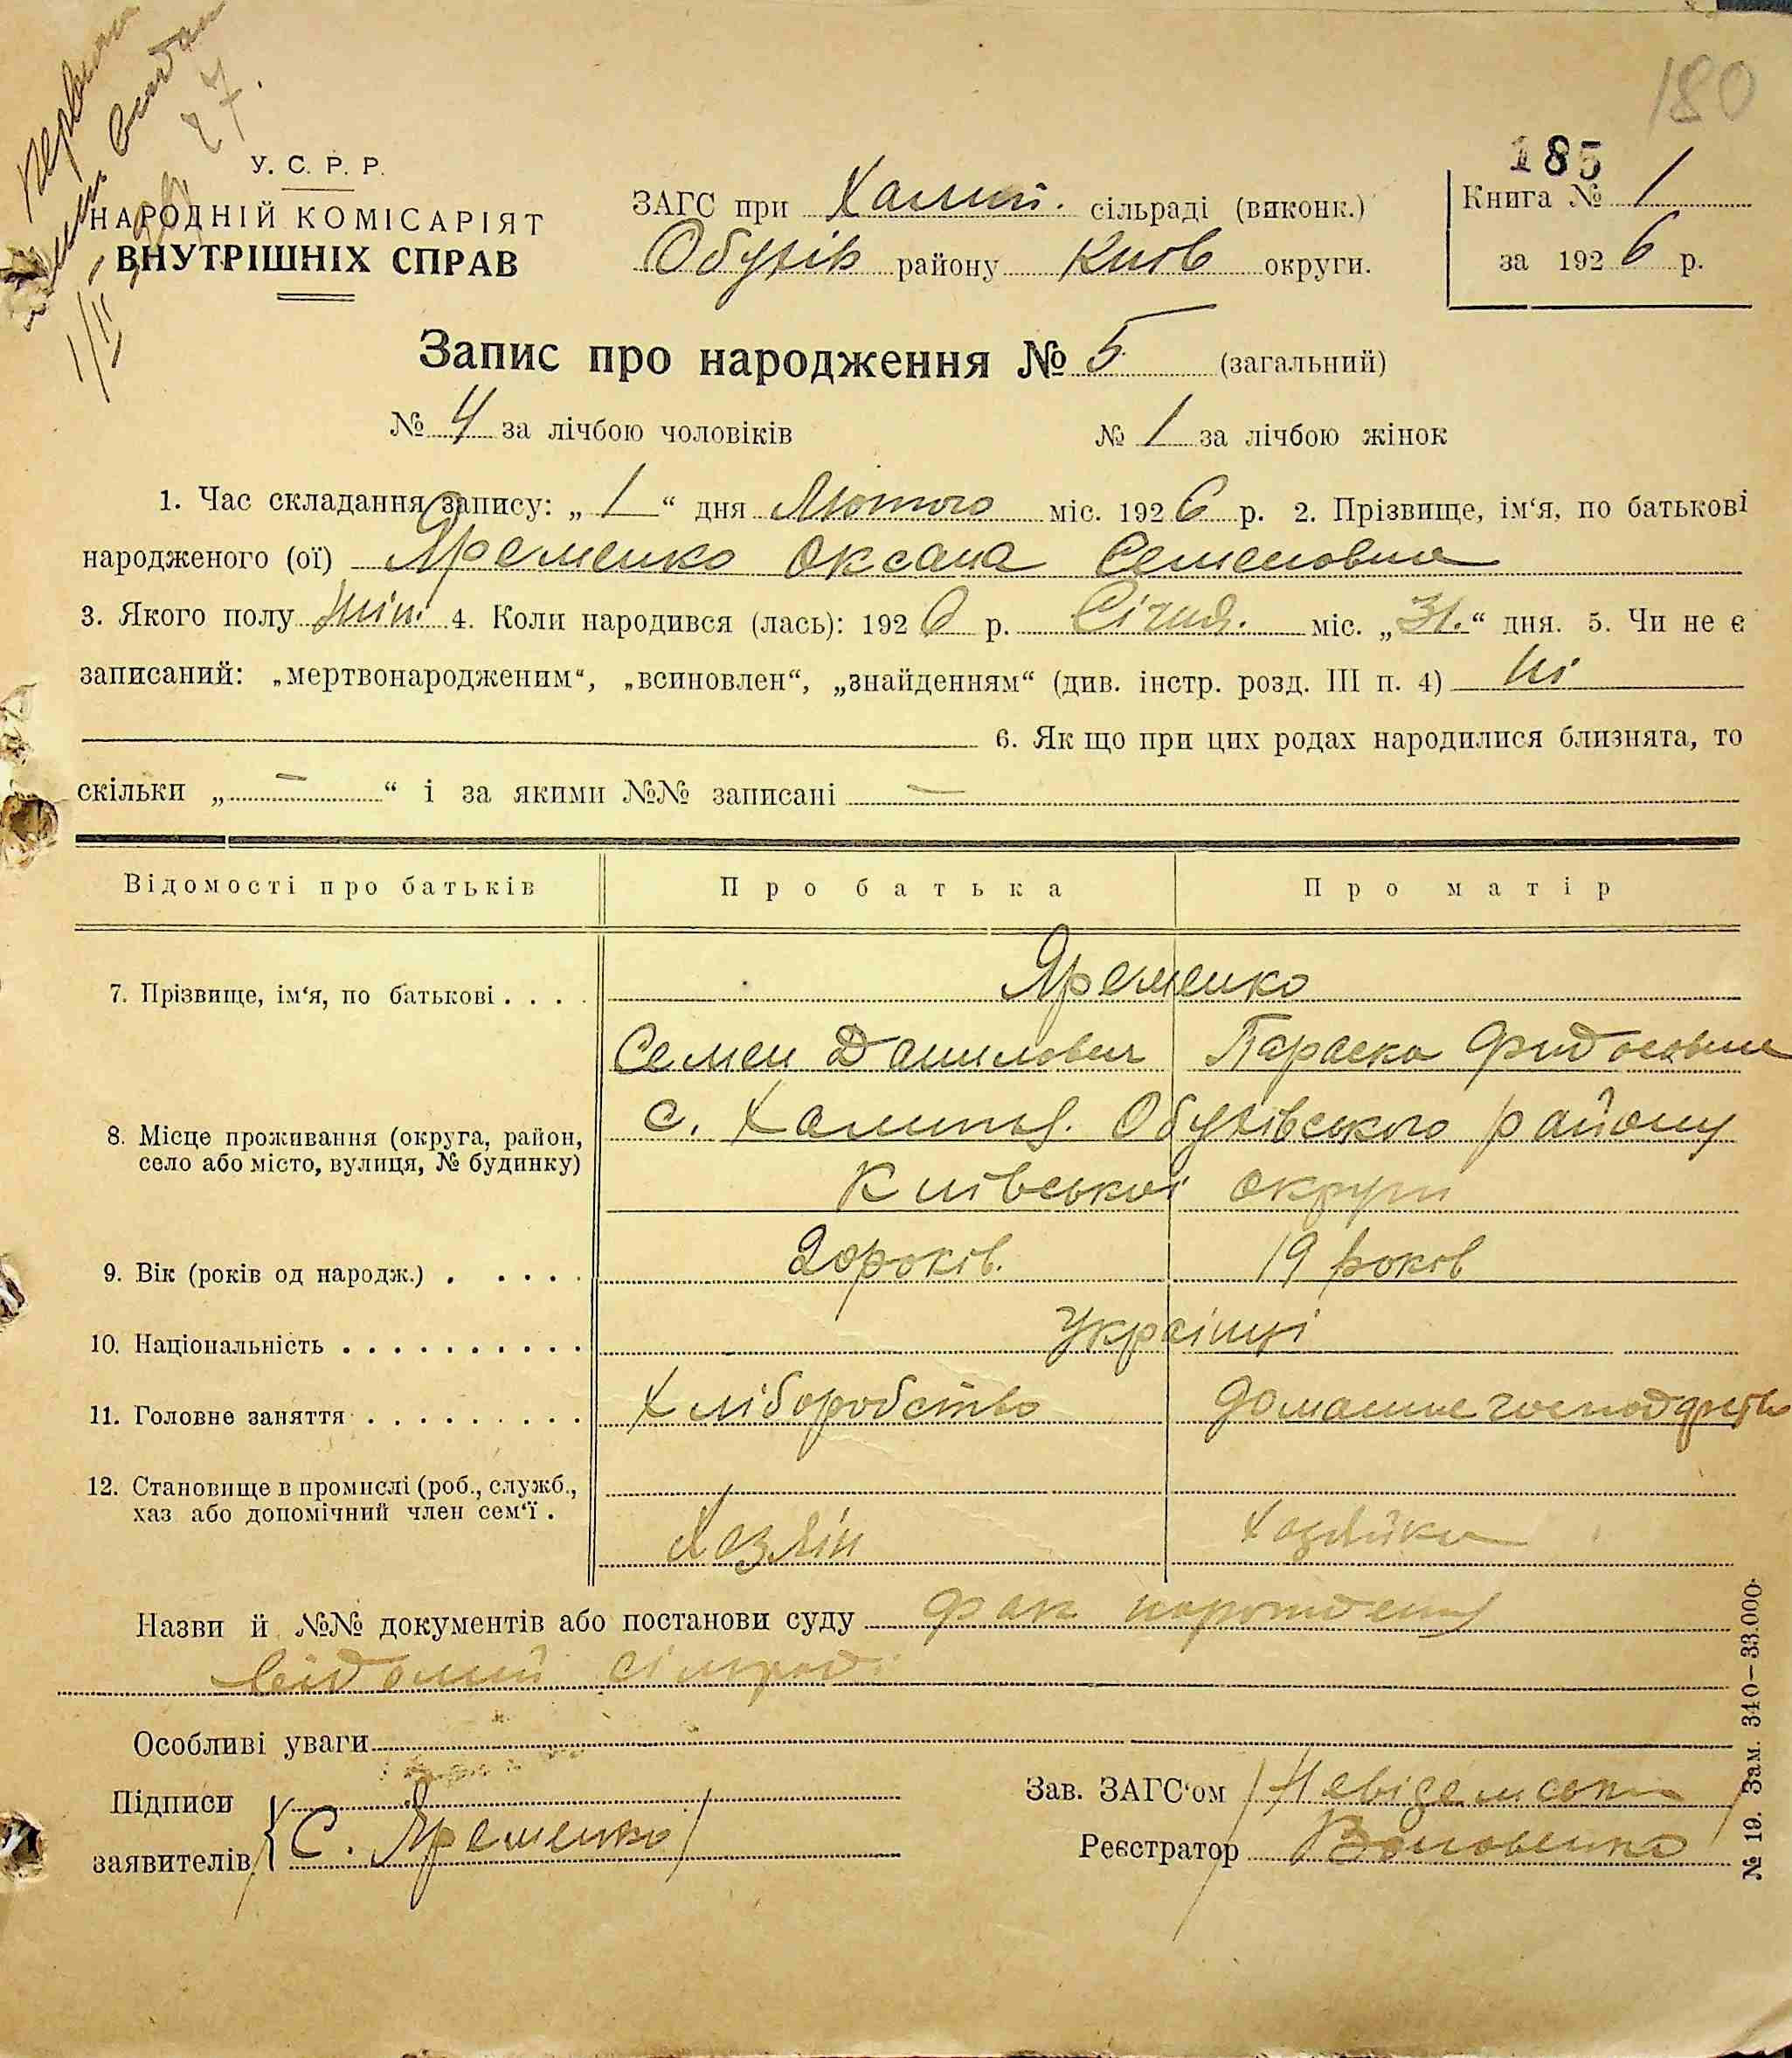 180
185
У. С. Р. Р.
НАРОДНІЙ КОМІСАРІЯТ
ВНУТРІШНІХ СПРАВ
ЗАГС при Халип. сільраді (виконк.)
Обухів району Київ округи.
Книга № 1
за 1926 р.
Запис про народження № 5 (загальний)
№ 4 за лічбою чоловіків № 1 за лічбою жінок
1. Час складання запису: „ 1 “ дня Лютого міс. 1926 р. 2. Прізвище, ім‘я, по батькові
народженого (ої) Яременко Оксана Семеновна
3. Якого полу жін. 4. Коли народився (лась): 1926 р. Січня. міс. „31.“ дня. 5. Чи не є
записаний: „мертвонародженим“, „всиновлен“, „знайденням“ (див. інстр. розд. III п. 4) ні
6. Як що при цих родах народилися близнята, то
скільки „ — “ і за якими №№ записані —
Відомості про батьків Про батька Про матір
7. Прізвище, ім‘я, по батькові . . . . Яременко
Семен Данилович Параска Фидосовна
8. Місце проживання (округа, район, село або місто, вулиця, № будинку) с. Халипья. Обухівського району
Київської округи
9. Вік (років од народж.) . . . . . 20 років. 19 років
10. Національність . . . . . . . . . . Українці
11. Головне заняття . . . . . . . . . . Хліборобство домашне господарство
12. Становище в промислі (роб., служб.,
хаз або допомічний член сем‘ї . Хозяін Хозяйка
Назви й №№ документів або постанови суду фак нарождения
відомий сільраді
Особливі уваги
Підписи
заявителів С. Яременко
Зав. ЗАГС‘ом
Реєстратор
№ 19. Зам. 340—33.000.